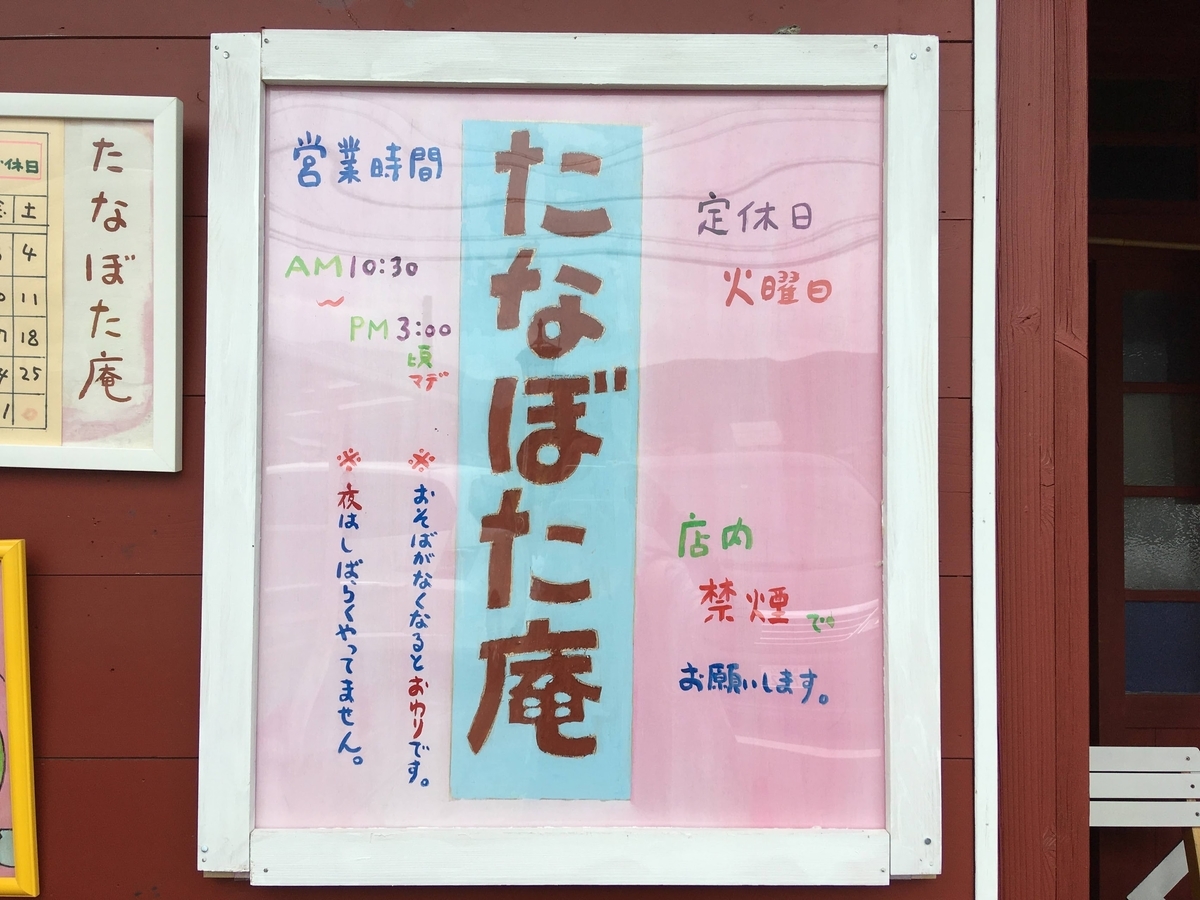 たなぼた庵
定休日
火曜日
店内
禁煙で
お願いします。
営業時間
AM10:30
〜
PM3:00
頃
マデ
※おそばがなくなるとおわりです。
※夜はしばらくやってません。
たなぼた庵
休日
土
4
11
18
25
1